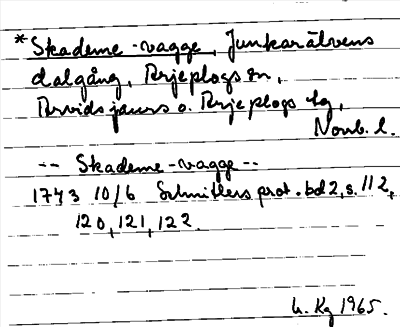 *Skademe-vagge, Junkarälvens
dalgång, Arjeplogs sn,
Arvidsjaurs o. Arjeplogs tg,
Norrb. l.
-- Skademe-vagge --
1743 10/6 Schnitlers prot. bd 2, s. 112,
120, 121, 122.
h. Kg 1965.